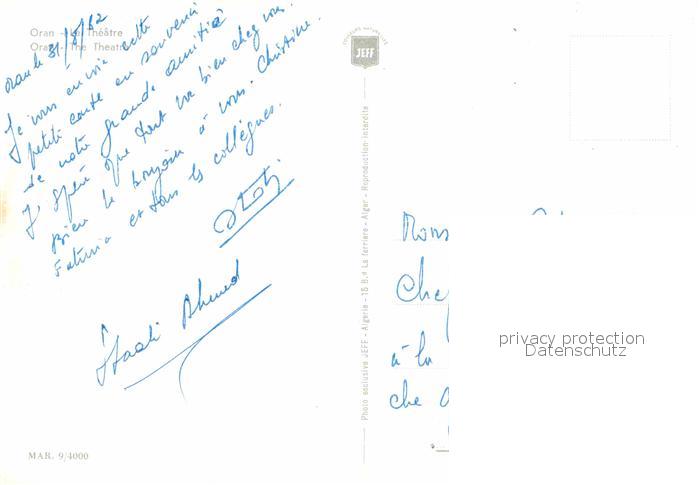 Oran - Le Théâtre
Oran - The Theatre
Oran le 31/8/82
Je vous envoie cette
petite carte en souvenir
de notre grande amitié
J'éspère que tout va bien chez vous.
Bien le bonjour à vous. Christine.
Fatima et tous les collègues.
Ahmed
MAR. 9/4000
COULEURS NATURELLES
JEFF
Photo exclusive JEFF - Algérie - 15 B.d La ferrière - Alger - Reproduction interdite
Mons
Che
à la
che
privacy protection
Datenschutz